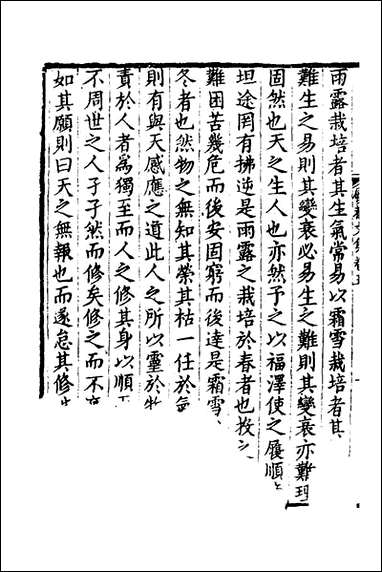 雨露栽培者其生氣常易以霜雪栽培者其
難生之易則其變衰必易生之難則其變衰亦難理
固然也天之生人也亦然予之以福澤使之履順
坦途罔有拂逆是雨露之栽培於春者也投之
難困苦幾危而後安固窮而後達是霜雪
冬者也然物之無知其榮其枯一任於氣
則有與天感應之道此人之所以靈於物
責於人者爲獨至而人之修其身以順
不周世之人孑孑然而修矣修之而不
如其願則曰天之無報也而遂怠其修